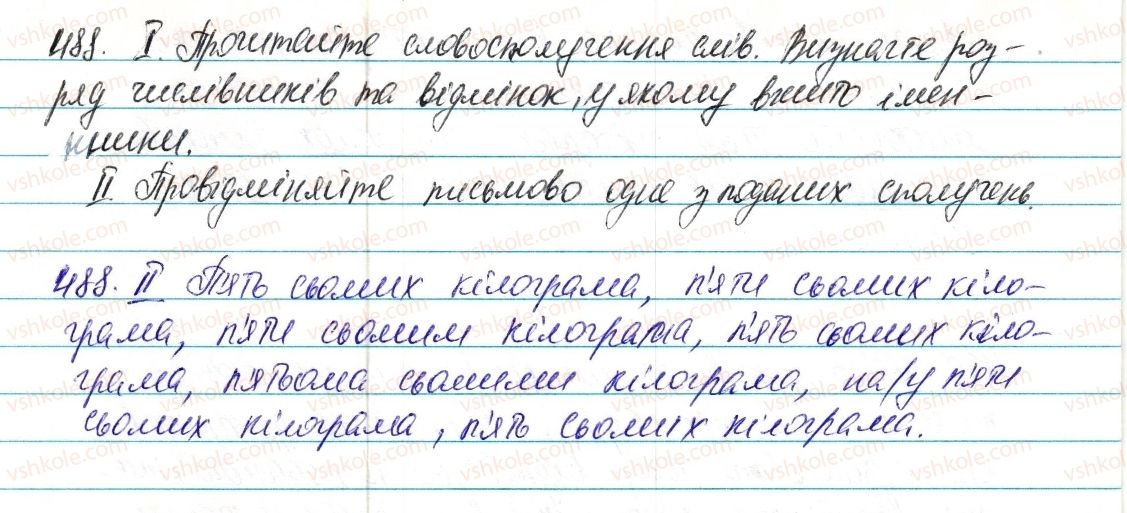 488. І. Прочитайте словосполучення слів. Визначте роз-
ряд числівників та відмінок, у якому вжито імен-
ники.
ІІ. Провідміняйте письмово одне з поданих сполучень.
488. ІІ П'ять сьомих кілограма, п'яти сьомих кіло-
грама, п'яти сьомим кілограма, п'ять сьомих кіло-
грама, п'ятьома сьомими кілограма, на/у п'яти
сьомих кілограма, п'ять сьомих кілограма.